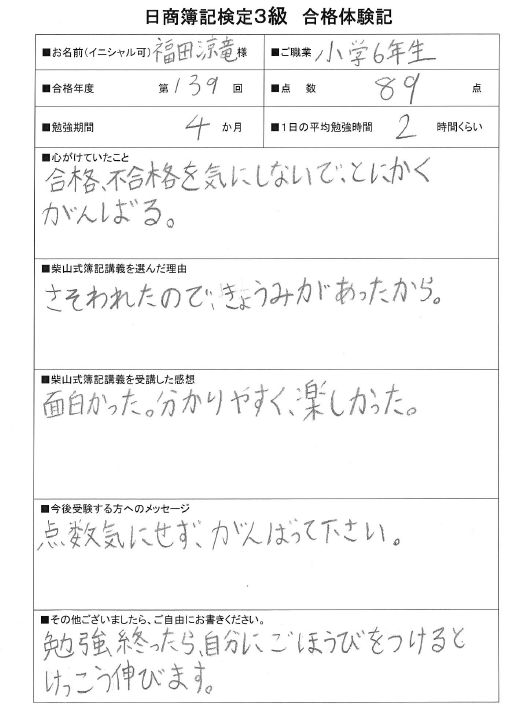 日商簿記検定3級 合格体験記
■お名前(イニシャル可) 福田涼竜様
■ご職業 小学6年生
■合格年度 第139回
■点数 89点
■勉強期間 4か月
■1日の平均勉強時間 2時間くらい
■心がけていたこと
合格、不合格を気にしないで、とにかく
がんばる。
■柴山式簿記講義を選んだ理由
さそわれたので、きょうみがあったから。
■柴山式簿記講義を受講した感想
面白かった。分かりやすく、楽しかった。
■今後受験する方へのメッセージ
点数気にせず、がんばって下さい。
■その他ございましたら、ご自由にお書きください。
勉強終ったら、自分にごほうびをつけると
けっこう伸びます。